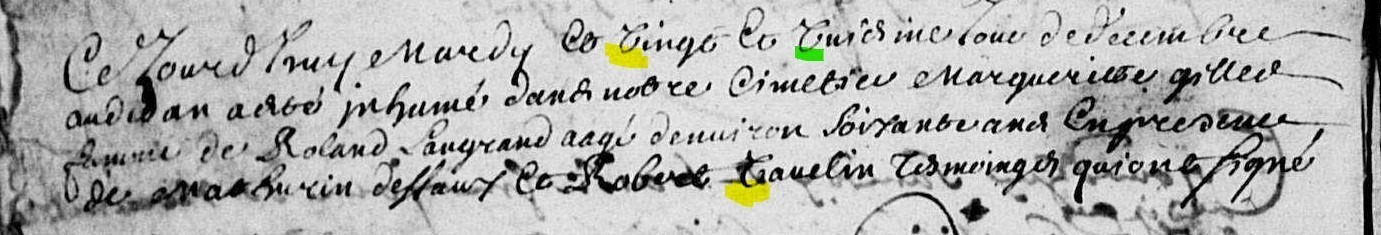 Ce Jourdhuy Mardy Le Vingt Et Jour de decembre
audit an a esté jnhumé dans notre Cimetiere Margueritte gilles
femme de Roland Langrand aagé denuiron soixante ans En presence
de Mathurin Et Robert tesmoings qui ont signé